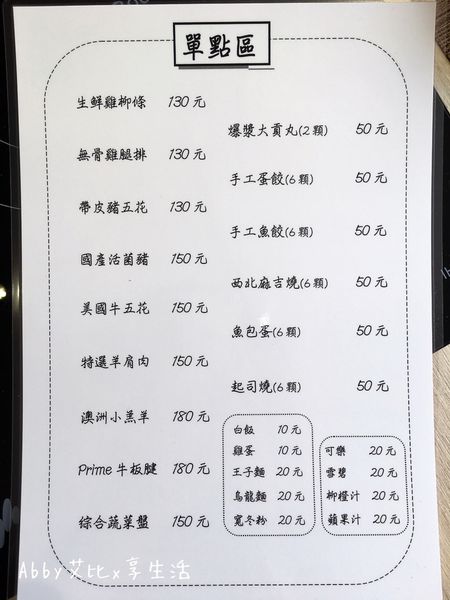 單點區
生鮮雞柳條 130元
無骨雞腿排 130元
帶皮豬五花 130元
國產活菌豬 150元
美國牛五花 150元
特選羊肩肉 150元
澳洲小羔羊 180元
Prime 牛板腱 180元
綜合蔬菜盤 150元
爆漿大貢丸(2顆) 50元
手工蛋餃(6顆) 50元
手工魚餃(6顆) 50元
西北麻吉燒(6顆) 50元
魚包蛋(6顆) 50元
起司燒(6顆) 50元
白飯 10元
雞蛋 10元
王子麵 20元
烏龍麵 20元
寬冬粉 20元
可樂 20元
雪碧 20元
柳橙汁 20元
蘋果汁 20元
Abby艾比x享生活